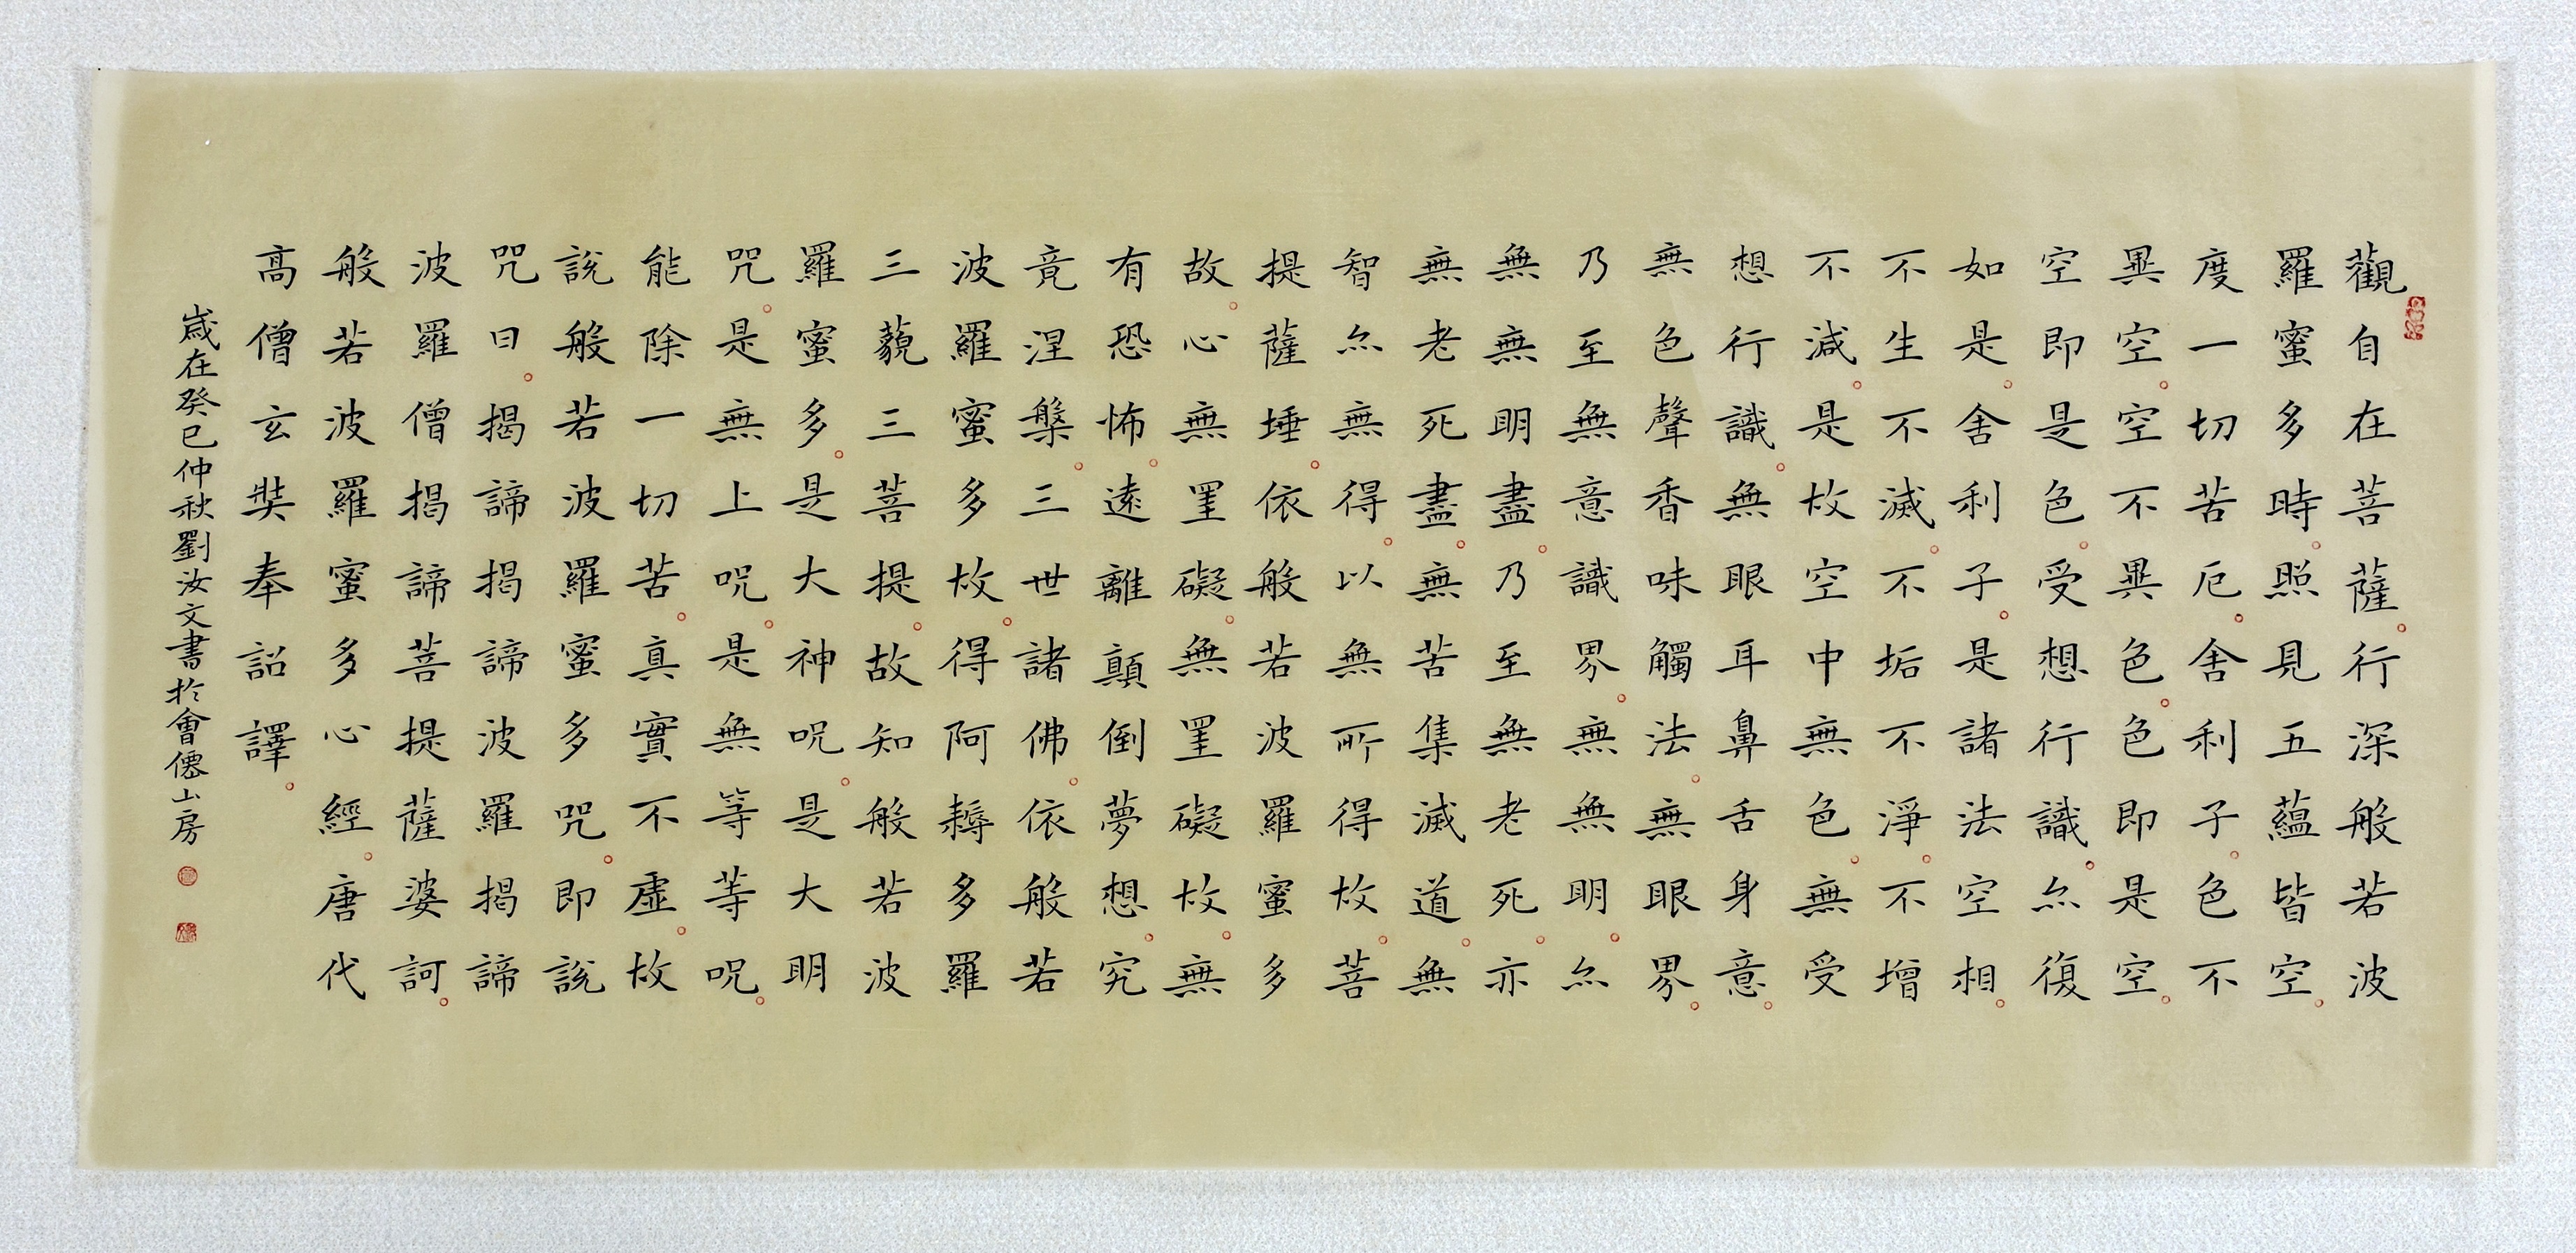 觀自在菩薩。行深般若波
羅蜜多時。照見五蘊皆空。
度一切苦厄。舍利子。色不
異空。空不異色。色即是空。
空即是色。受想行識。亦復
如是。舍利子。是諸法空相。
不生不滅。不垢不淨。不增
不減。是故空中無色。無受
想行識。無眼耳鼻舌身意。
無色聲香味觸法。無眼界。
乃至無意識界。無無明。亦
無無明盡。乃至無老死。亦
無老死盡。無苦集滅道。無
智亦無得。以無所得故。菩
提薩埵。依般若波羅蜜多
故。心無罣礙。無罣礙故。無
有恐怖。遠離顛倒夢想。究
竟涅槃。三世諸佛。依般若
波羅蜜多故。得阿耨多羅
三藐三菩提。故知般若波
羅蜜多。是大神咒。是大明
咒。是無上咒。是無等等咒。
能除一切苦。真實不虛。故
說般若波羅蜜多咒。即說
咒曰。揭諦揭諦波羅揭諦
波羅僧揭諦菩提薩婆訶。
般若波羅蜜多心經。唐代
高僧玄奘奉詔譯。
歲在癸巳仲秋劉汝文書於會僊山房